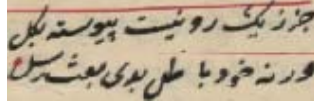 جز زیک رو نیست پیوسته بکل
ورنه خود با طل بدی بعث رسل